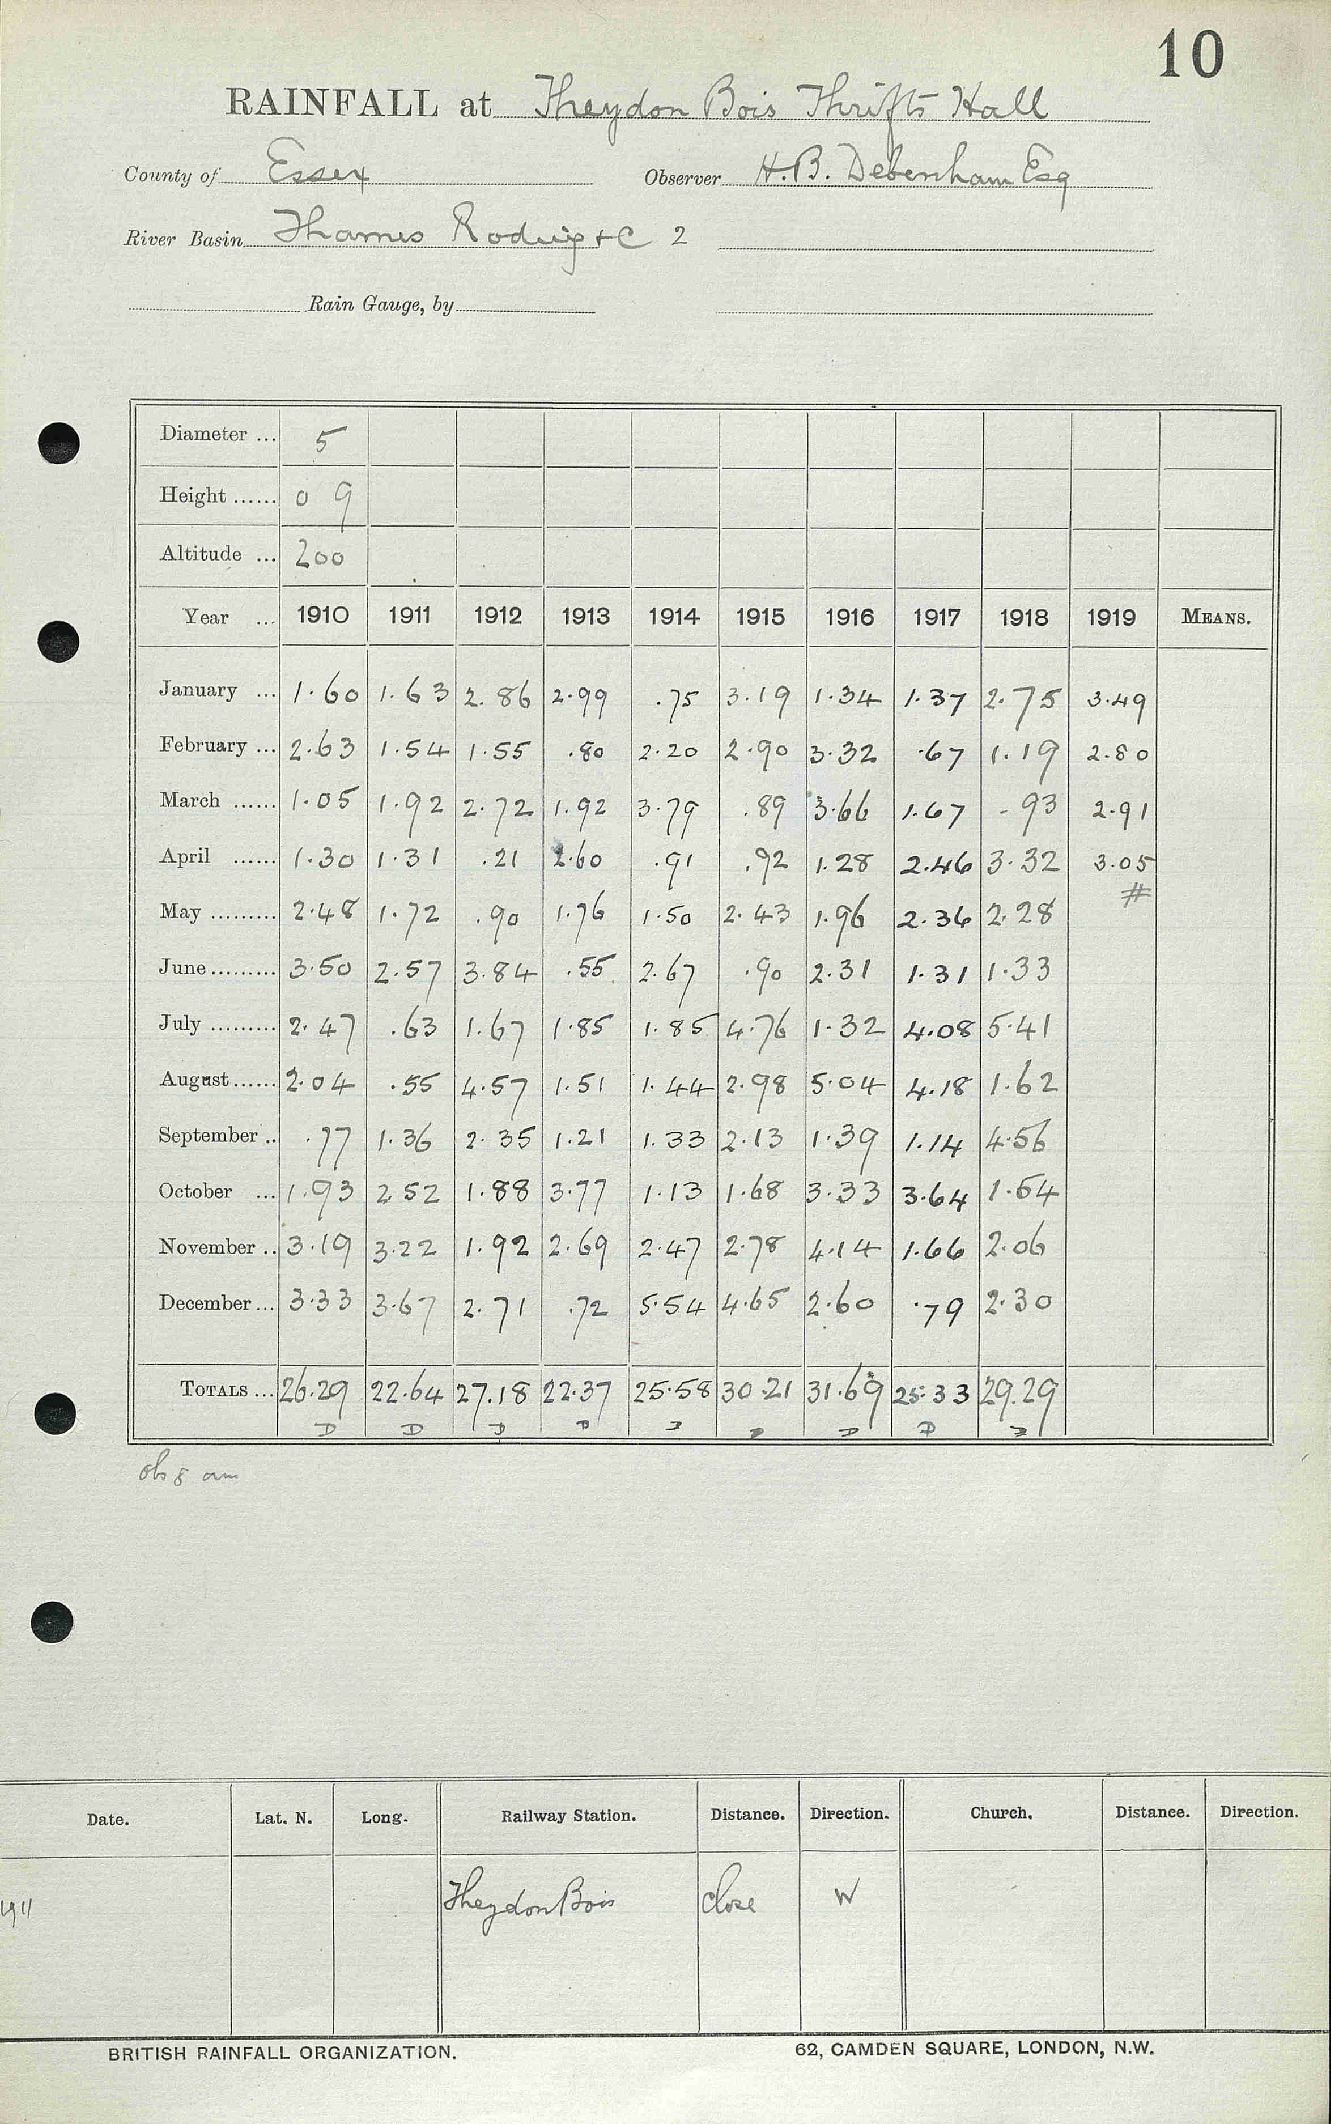 10
RAINFALL at Theydon Bois Thrifts Hall
County of Essex Observer H.B. Debenham Esq
River Basin Thames Roding & C 2
Rain Gauge, by
Diameter ... 5
Height ...... 0 9
Altitude ... 200
Year ... 1910 1911 1912 1913 1914 1915 1916 1917 1918 1919 MEANS.
January ... 1.60 1.63 2.86 2.99 .75 3.19 1.34 1.37 2.75 3.49
February ... 2.63 1.54 1.55 .80 2.20 2.90 3.32 .67 1.19 2.80
March ...... 1.05 1.92 2.72 1.92 3.79 .89 3.66 1.67 .93 2.91
April ...... 1.30 1.31 .21 2.60 .91 .92 1.28 2.46 3.32 3.05
#
May ......... 2.48 1.72 .90 1.76 1.50 2.43 1.96 2.36 2.28
June ......... 3.50 2.57 3.84 .55 2.67 .90 2.31 1.31 1.33
July ......... 2.47 .63 1.67 1.85 1.85 4.76 1.32 4.08 5.41
August ...... 2.04 .55 4.57 1.51 1.44 2.98 5.04 4.18 1.62
September .. .77 1.36 2.35 1.21 1.33 2.13 1.39 1.14 4.56
October ... 1.93 2 52 1.88 3.77 1.13 1.68 3.33 3.64 1.54
November .. 3.19 3.22 1.92 2.69 2.47 2.78 4.14 1.66 2.06
December ... 3.33 3.67 2.71 .72 5.54 4.65 2.60 .79 2.30
TOTALS ... 26.29 22.64 27.18 22.37 25.58 30.21 31.69 25.33 29.29
D D D D D D D D D
obs 8 am
Date. Lat. N. Long. Railway Station. Distance. Direction. Church. Distance. Direction.
1911 Theydon Bois close W
BRITISH RAINFALL ORGANIZATION. 62, CAMDEN SQUARE, LONDON, N.W.